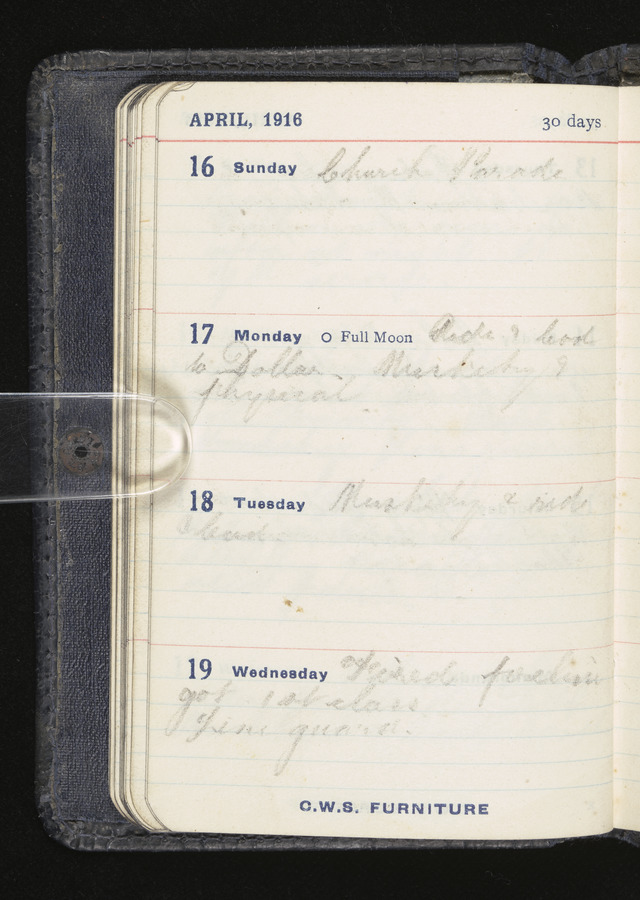 APRIL, 1916 30 days
16 Sunday Church Parade
17 Monday O Full Moon Ride & lead
to Dollar. Musketry &
physical
18 Tuesday Musketry & ride
& lead.
19 Wednesday Fired
got 1st class
Line guard.
C.W.S. FURNITURE